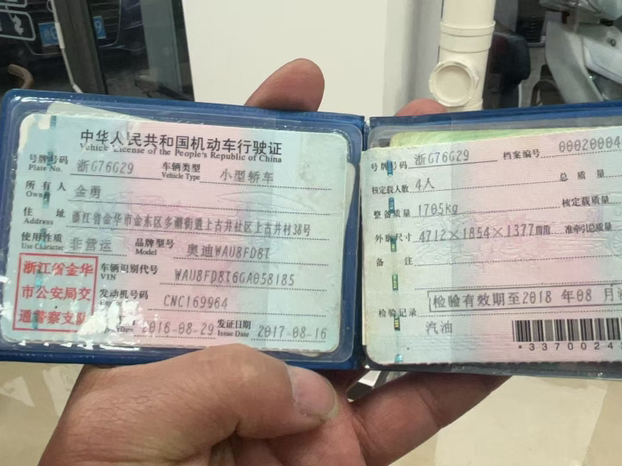 中华人民共和国机动车行驶证
Vehicle License of the People's Republic of China
号牌号码 浙G76G29 车辆类型 小型轿车
Plate No. Vehicle Type
所有人 金勇
Owner
住址 浙江省金华市金东区多湖街道上古井社区上古井村38号
Address
使用性质 非营运 品牌型号 奥迪WAU8FD8T
Use Character Model
浙江省金华
市公安局交
通警察支队
车辆识别代号 WAU8FD8T6GA058185
VIN
发动机号码 CNC169964
2016-08-29 发证日期 2017-08-16
Issue Date
号牌号码 浙G76G29 档案编号 00020004
核定载人数 4人 总质量
整备质量 1705kg 核定载质量
外廓尺寸 4712×1854×1377 准牵引总质量
备注
检验有效期至2018年08月
检验记录
汽油
*3370024